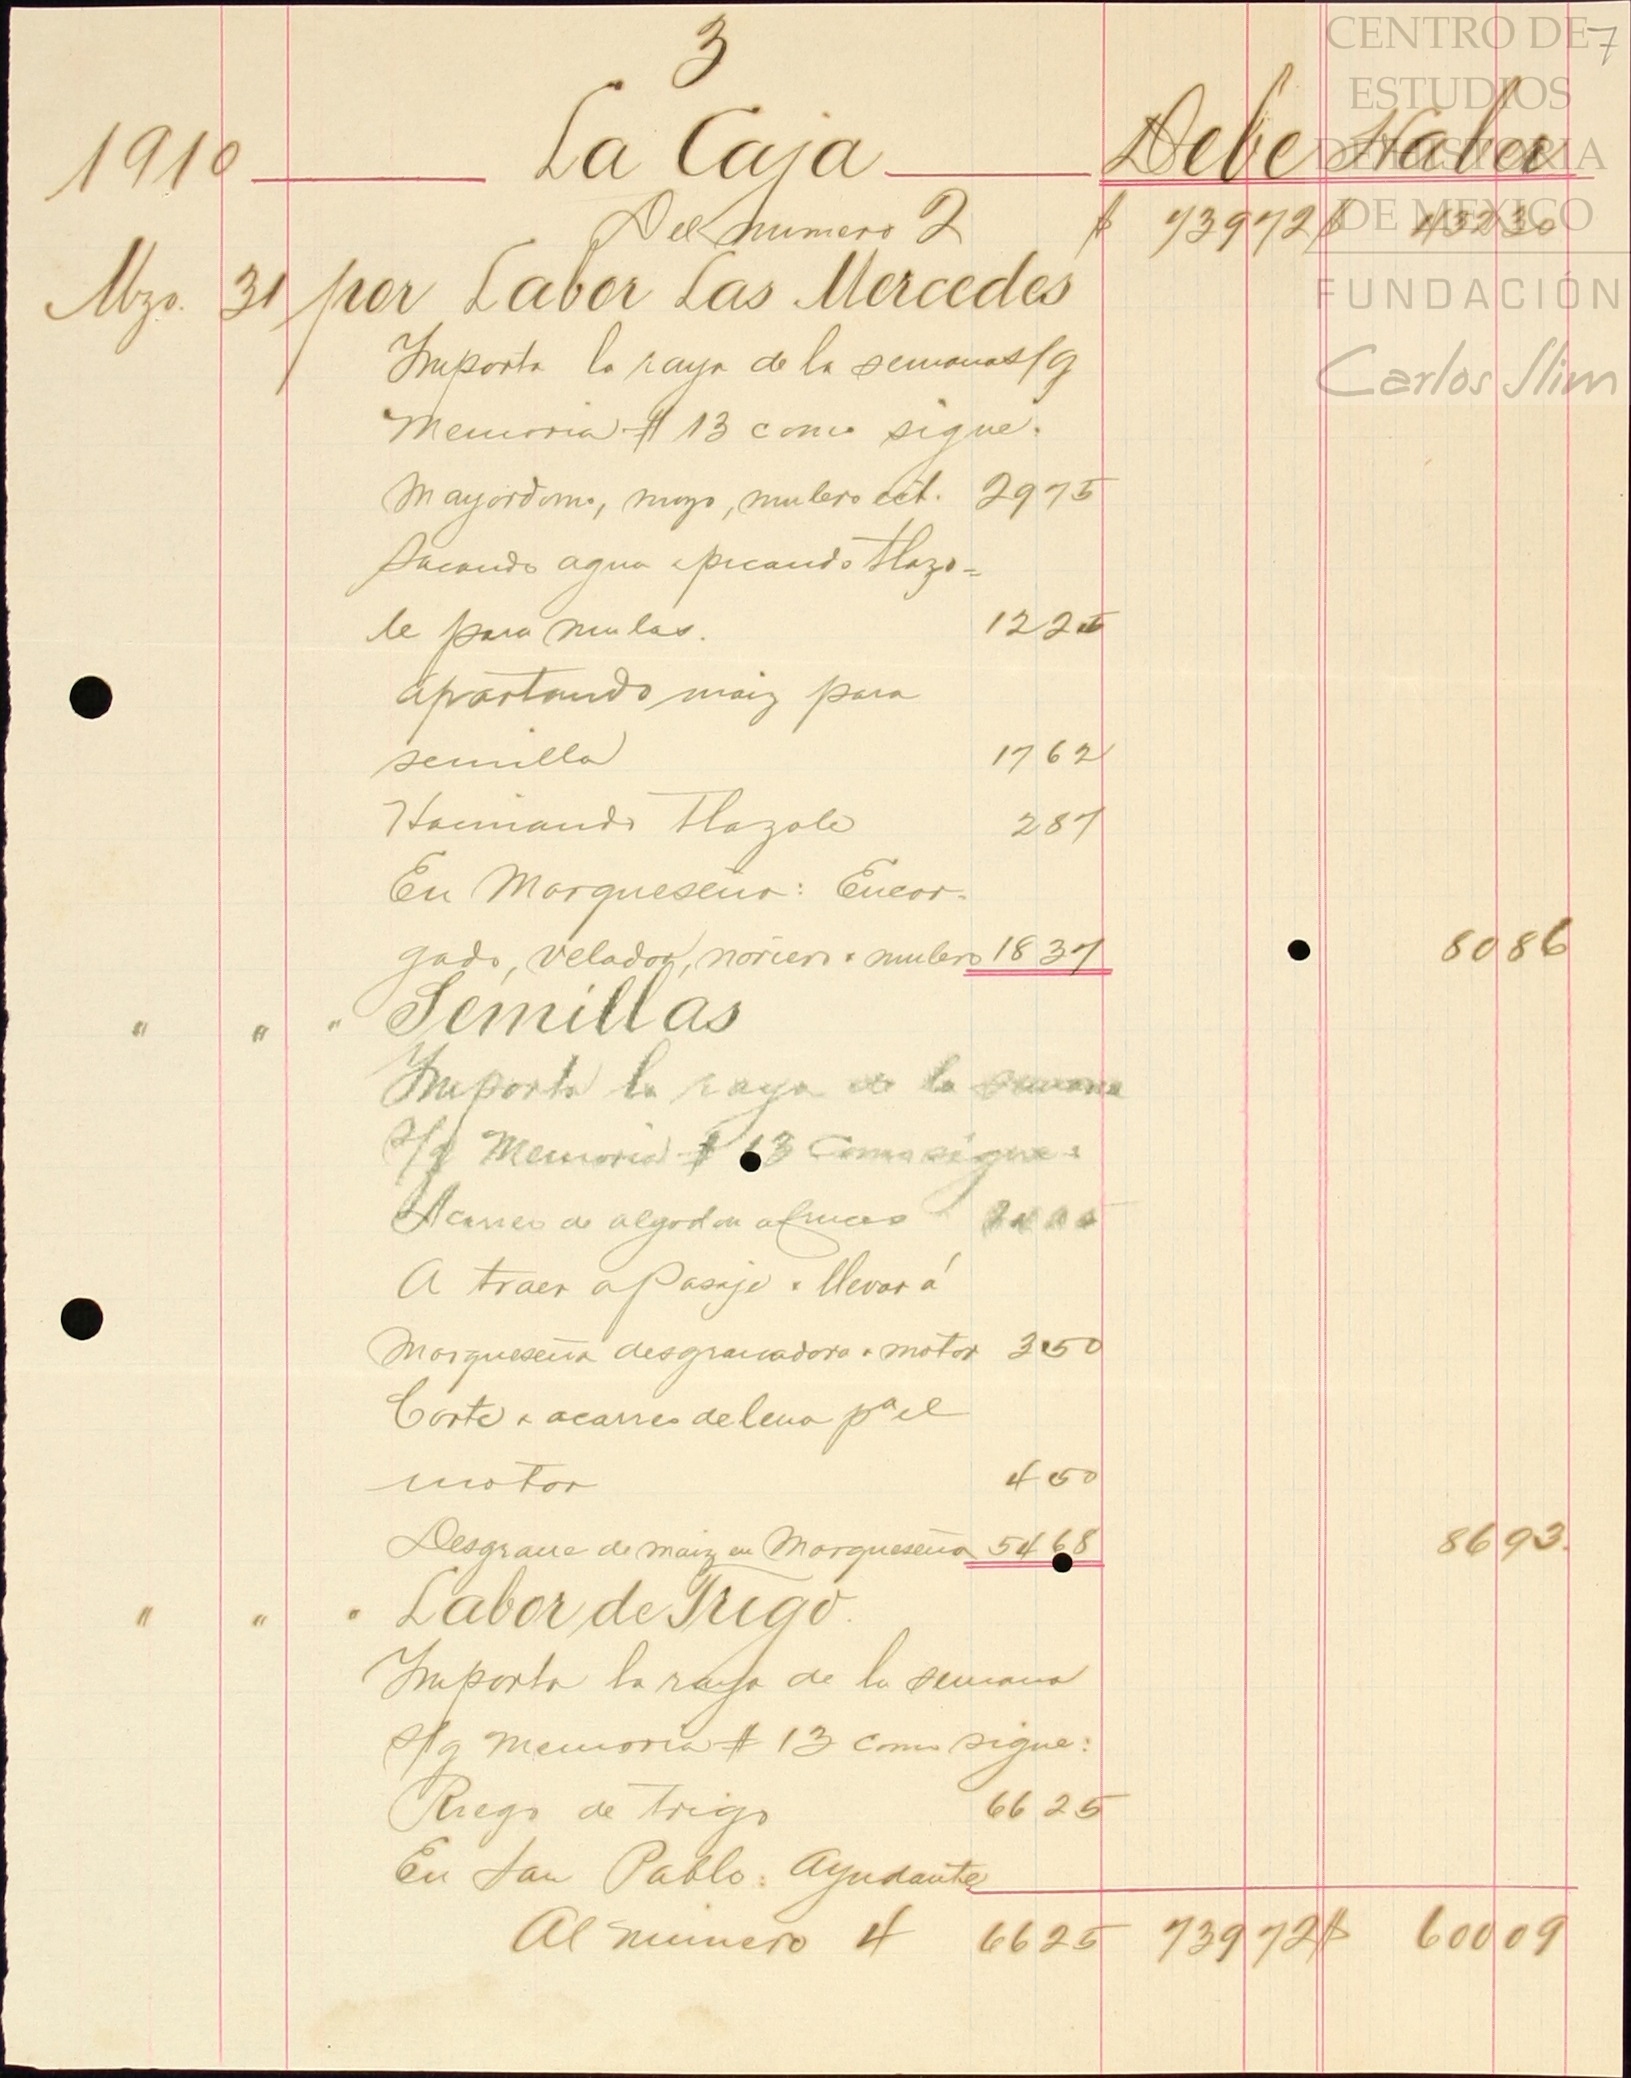 3
7
1910 La Caja Debe Haber
Del numero 2 $ 739 72 $ 432 30
Mzo. 31 por Labor Las Mercedes
Importa la raya de la semana s/g
Memoria # 13 como sigue.
Mayordomo, mozo, mulero ect. 29 75
Sacando agua picando tlazo=
le para mulas. 12 25
Apartando maiz para
semilla 17 62
Hacinando Tlazole 2 87
En Marqueseña: Encar-
gado, velador, noriero y mulero 18 37 80 86
" " " Semillas
Importa la raya de la semana
s/g Memoria # 13 Como sigue:
Acarreo de algodon a Cruces
A traer a Pasaje y llevar á
Marqueseña desgranadora y motor 3 50
Corte y acarreo de lena pa el
motor 4 50
Desgrane de maiz en Marqueseña 54 68 86 93.
" " " Labor de Trigo.
Importa la raya de la semana
s/g Memoria # 13 como sigue:
Riego de trigo 66 25
En San Pablo: Ayudante
Al numero 4 66 25 739 72 $ 600 09
CENTRO DE
ESTUDIOS
DE HISTORIA
DE MÉXICO
FUNDACIÓN
Carlos Slim